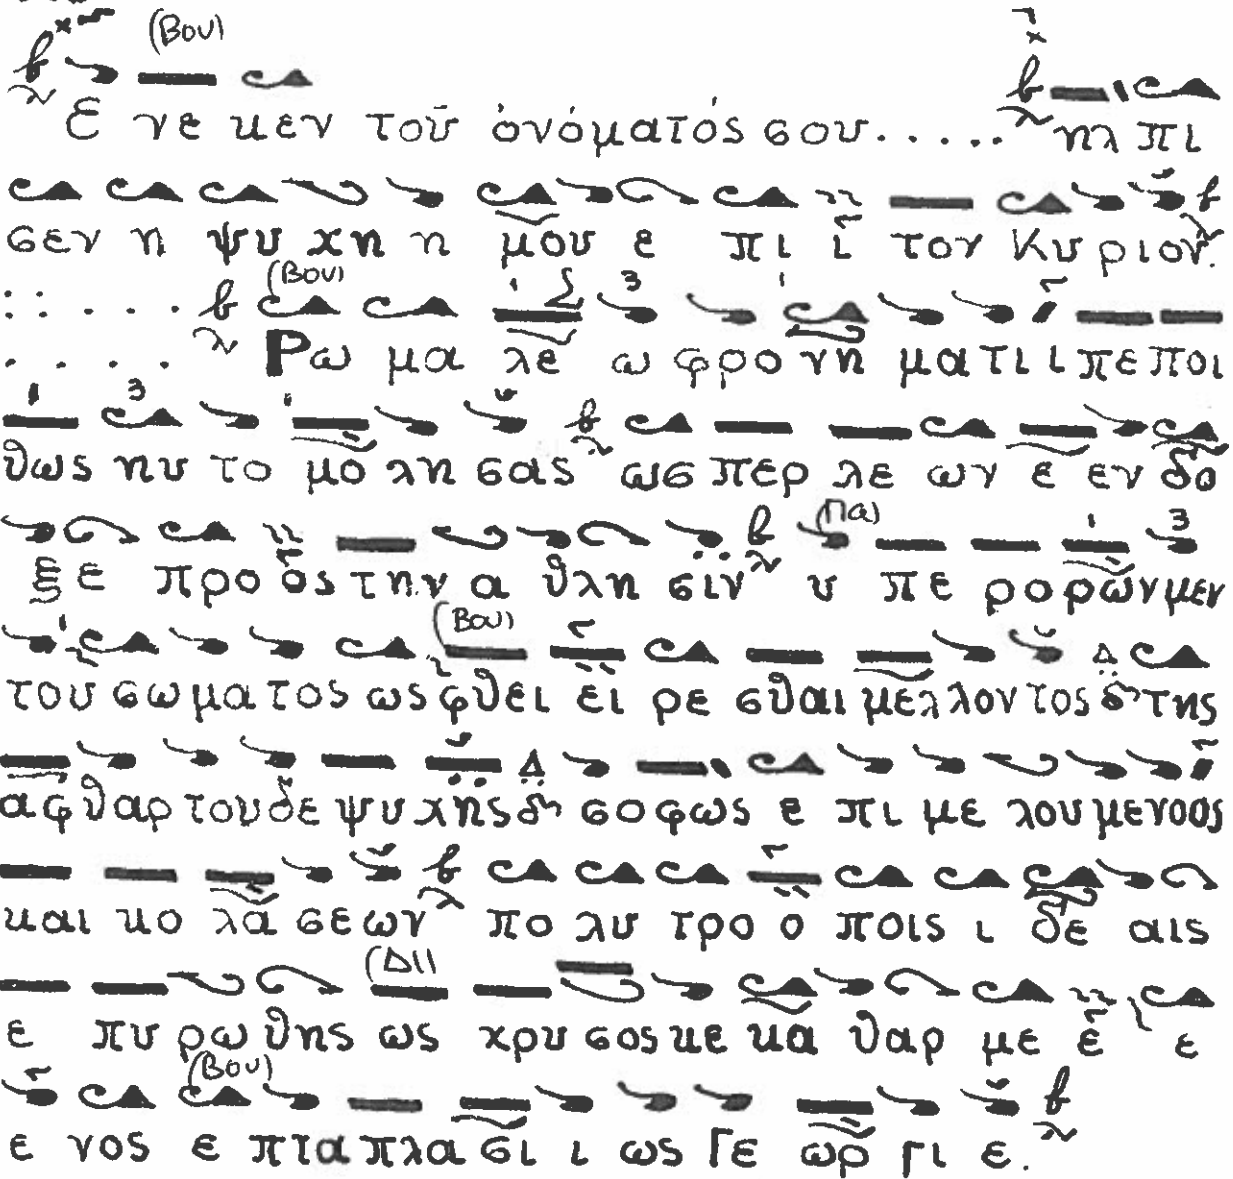 (Βου)
Ε νε κεν τοῦ ὀνόματός σου. . . . . . ηλ πι
σεν η ψυ χη η μου ε πι ι τον Κυ ριον.
(Βου)
Ρω μα λε ω φρο νη μα τι ι πε ποι
θως ηυ το μο λη σας ωσ περ λε ων ε εν δο
(Πα)
ξε ε προ ος την α θλη σιν υ πε ρο ρων μεν
(Βου)
του σω μα τος ως φθει ει ρε σθαι μελ λον τος της
α φθαρ του δε ψυ χης σο φως ε πι με λου μενοος
και κο λα σεων πο λυ τρο ο ποις ι δε αις
(Δι)
ε πυ ρω θης ως χρυ σος κε κα θαρ με ε ε
(Βου)
ε νος ε πτα πλα σι ι ως Γε ωρ γι ε.